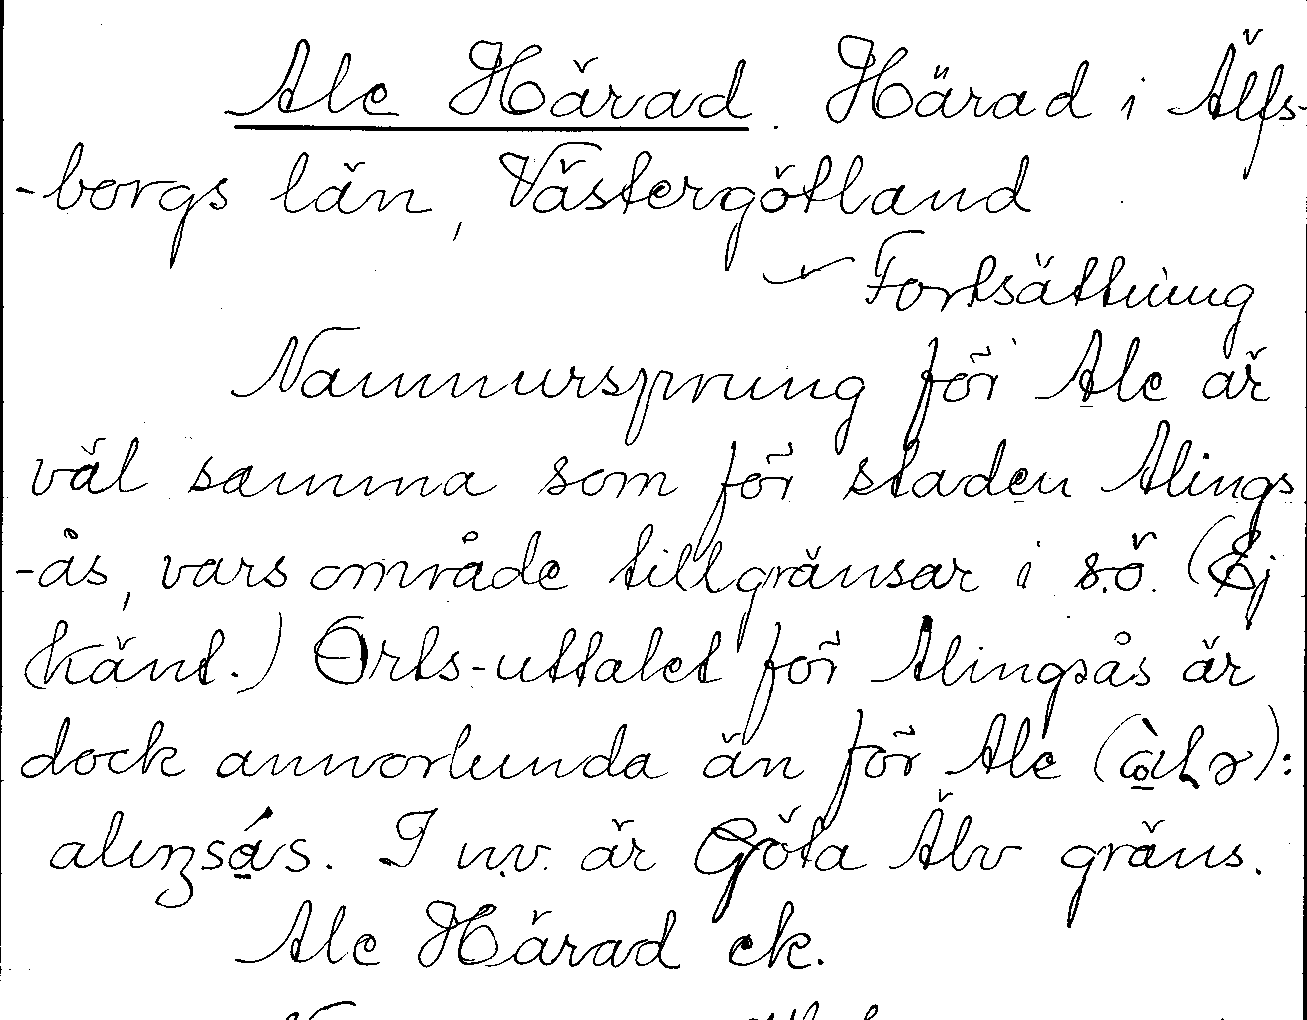 Ale Härad. Härad i Älfs-
-borgs län, Västergötland
Fortsättning
Namnursprung för Ale är
väl samma som för staden Alings
-ås, vars område tillgränsar i s.ö. (Ej
känt.) Orts-uttalet för Alingsås är
dock annorlunda än för Ale
I n.v. är Göta Älv gräns.
Ale Härad ek.